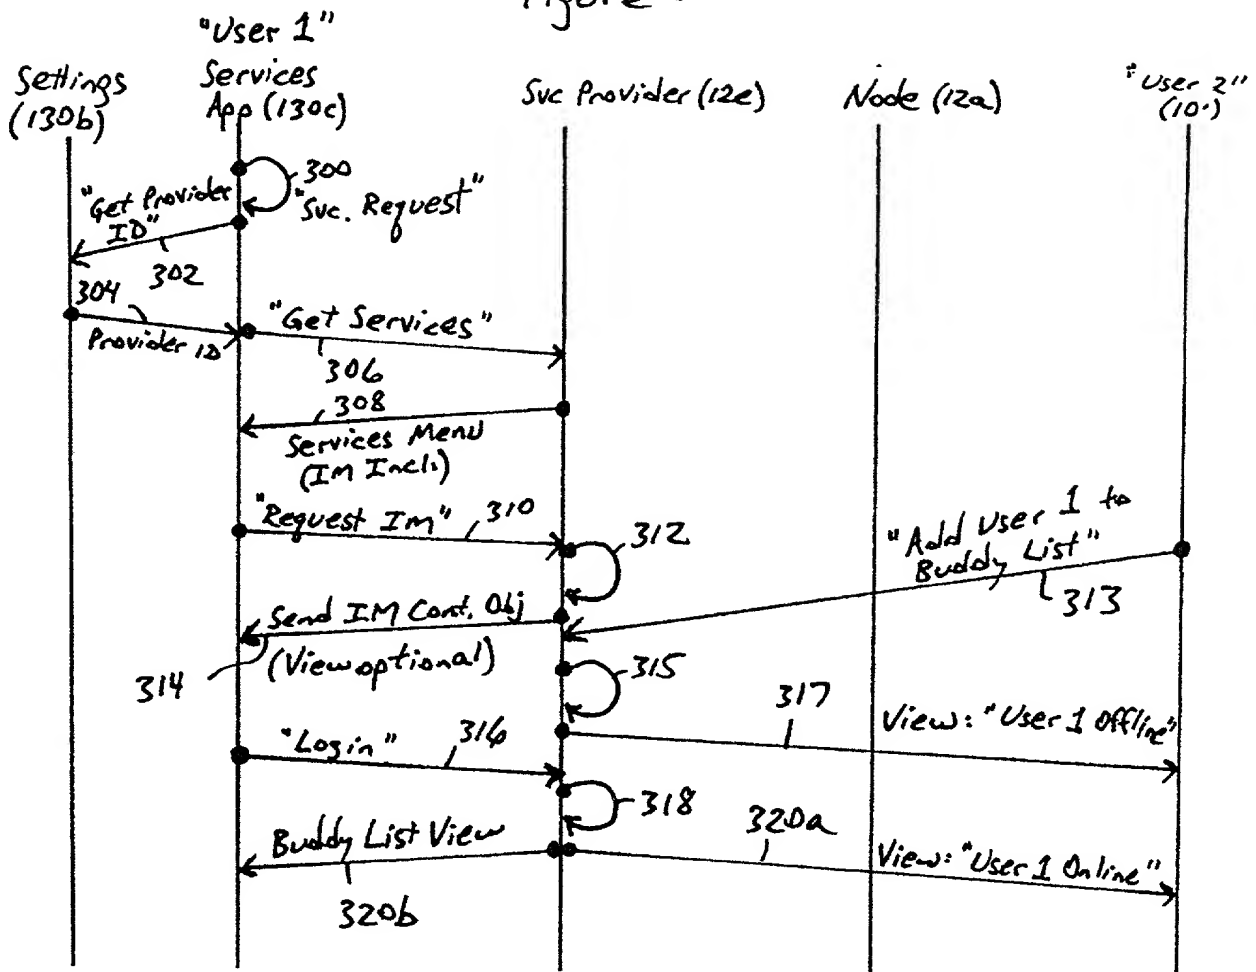 Figure
"User 1"
Settings
(130b)
Services
App (130c)
Svc Provider (12e)
Node (12a)
"User 2"
(10')
300
"Svc. Request"
"Get Provider
ID"
302
304
Provider ID
"Get Services"
306
308
Services Menu
(IM Incl.)
"Request IM"
310
312
"Add User 1 to
Buddy List"
313
Send IM Cont. Obj
(View optional)
314
315
317
View: "User 1 Offline"
"Login"
316
318
320a
Buddy List View
View: "User 1 Online"
320b